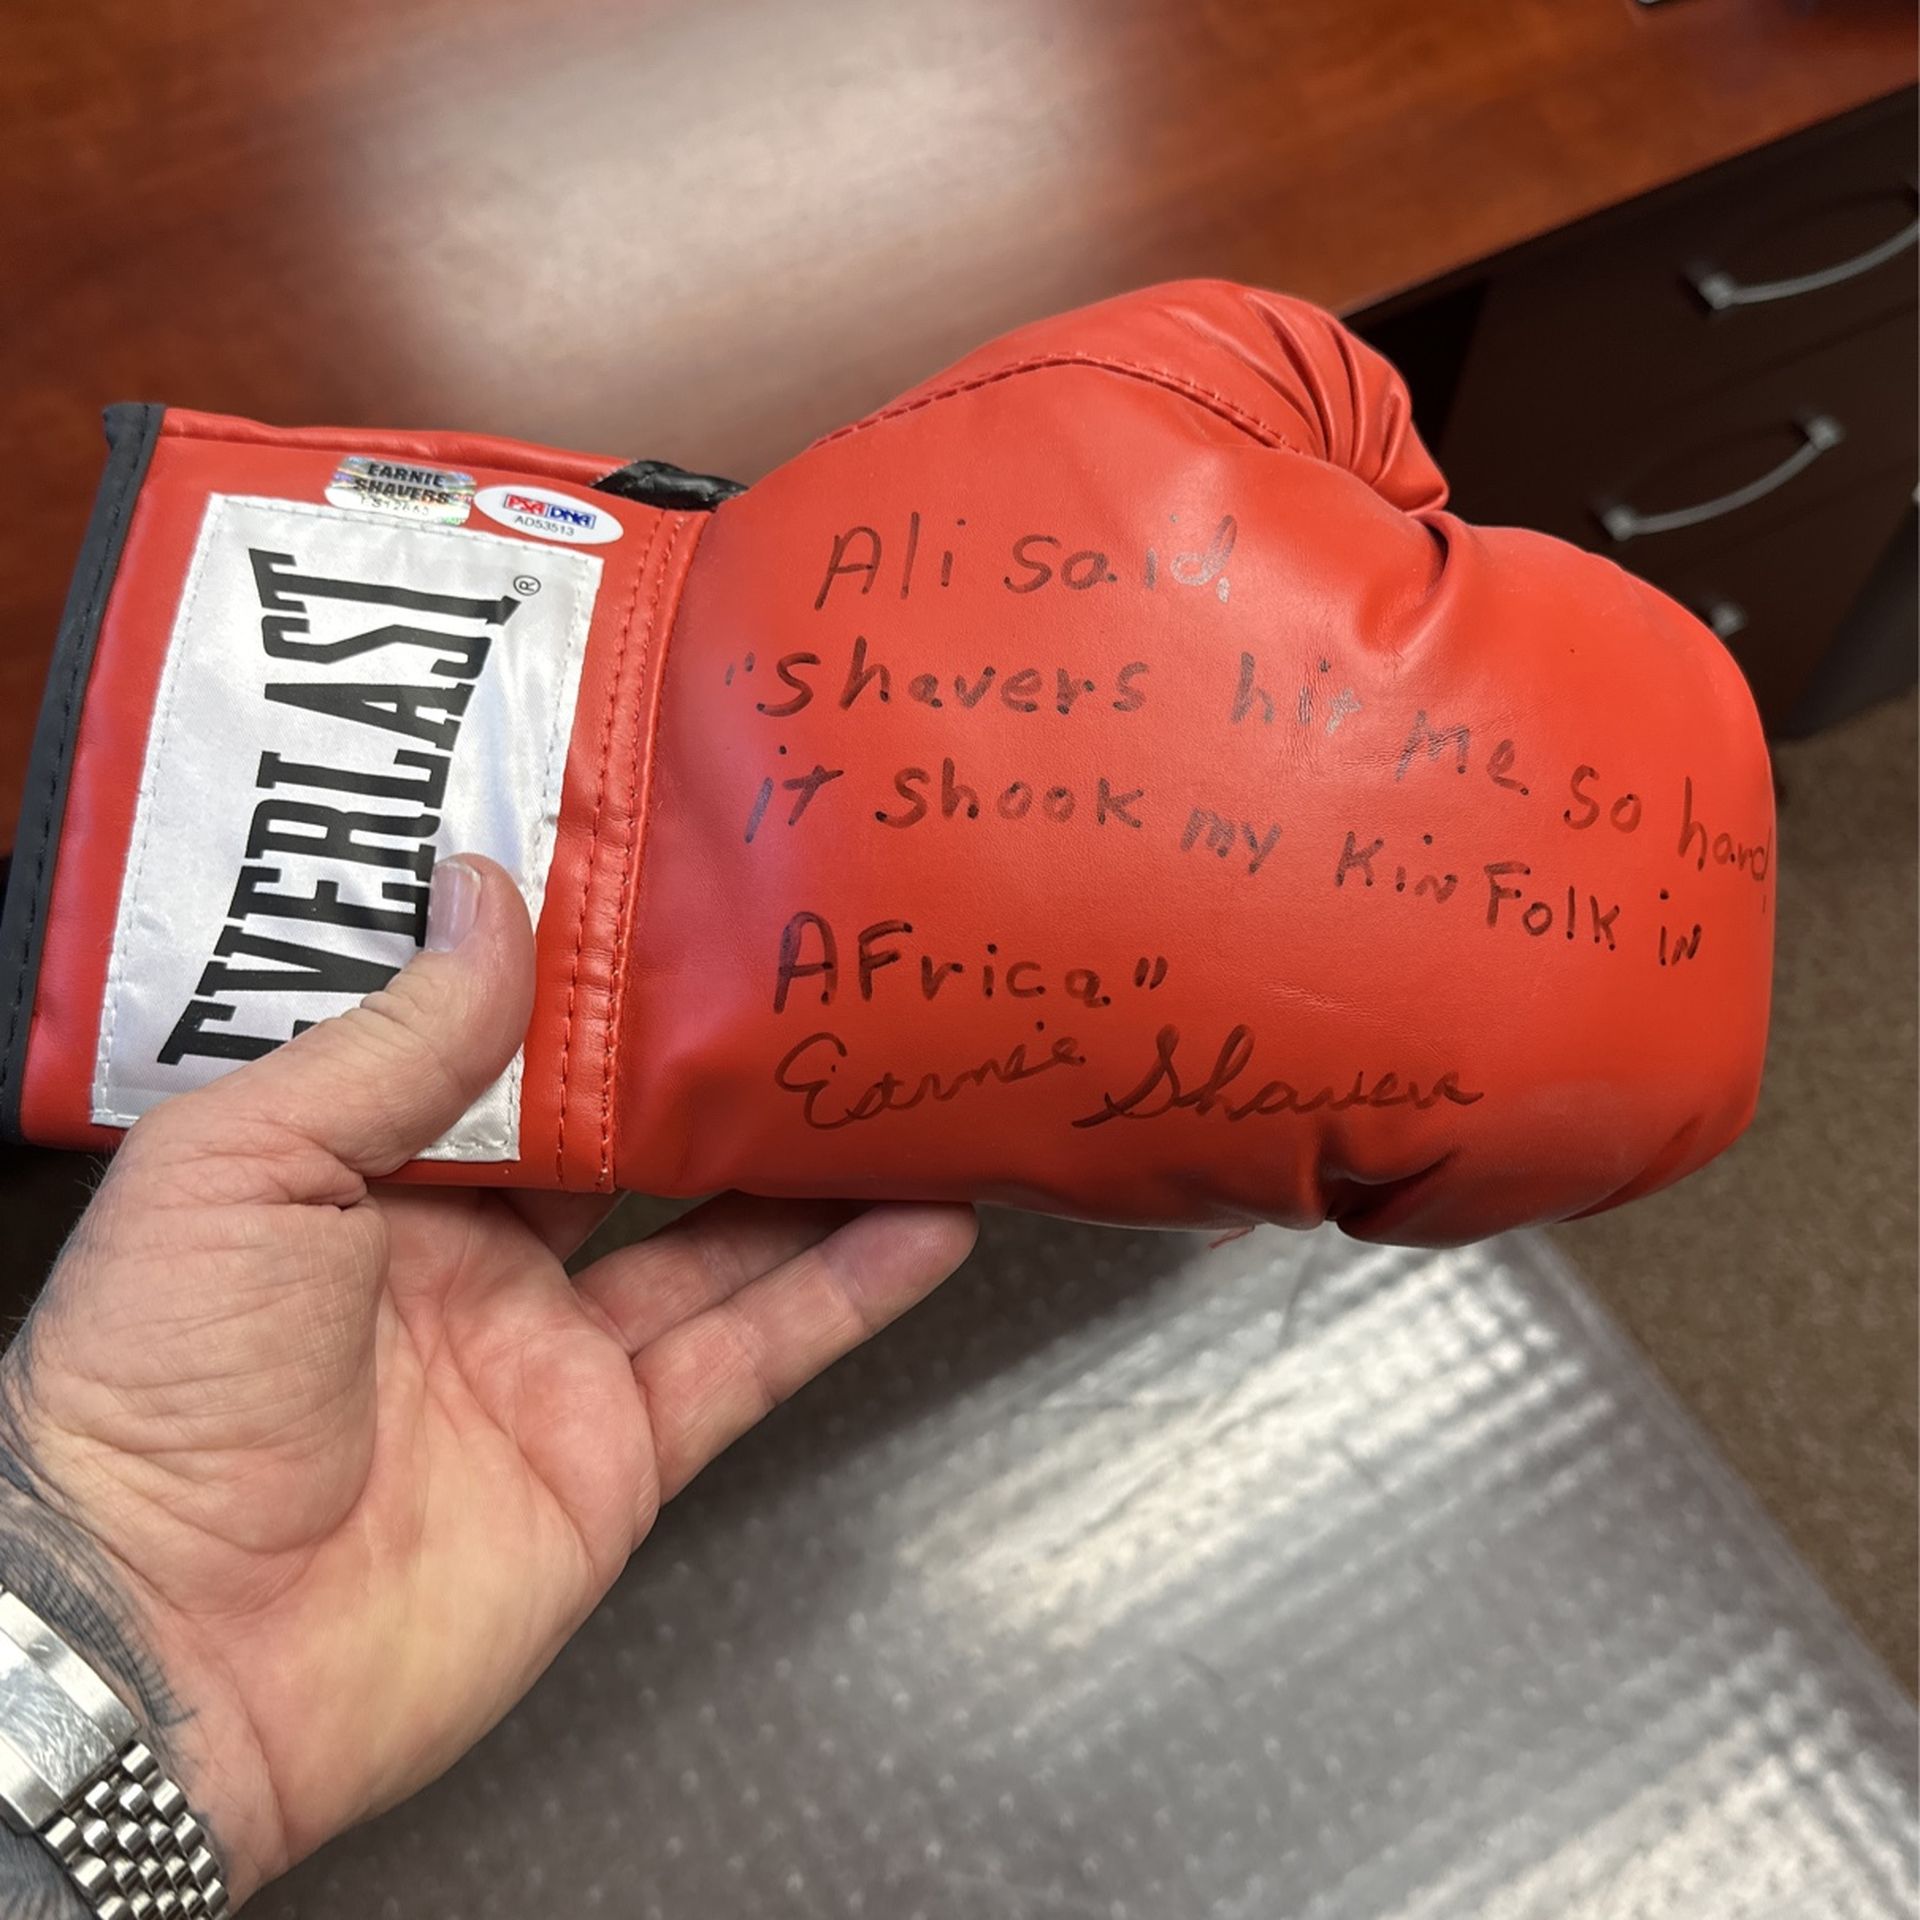 EARNIE
SHAVERS
PSA DNA
AD53513
EVERLAST®
Ali said,
"Shavers hit me so hard
it shook my KinFolk in
AFrica"
Earnie Shavers